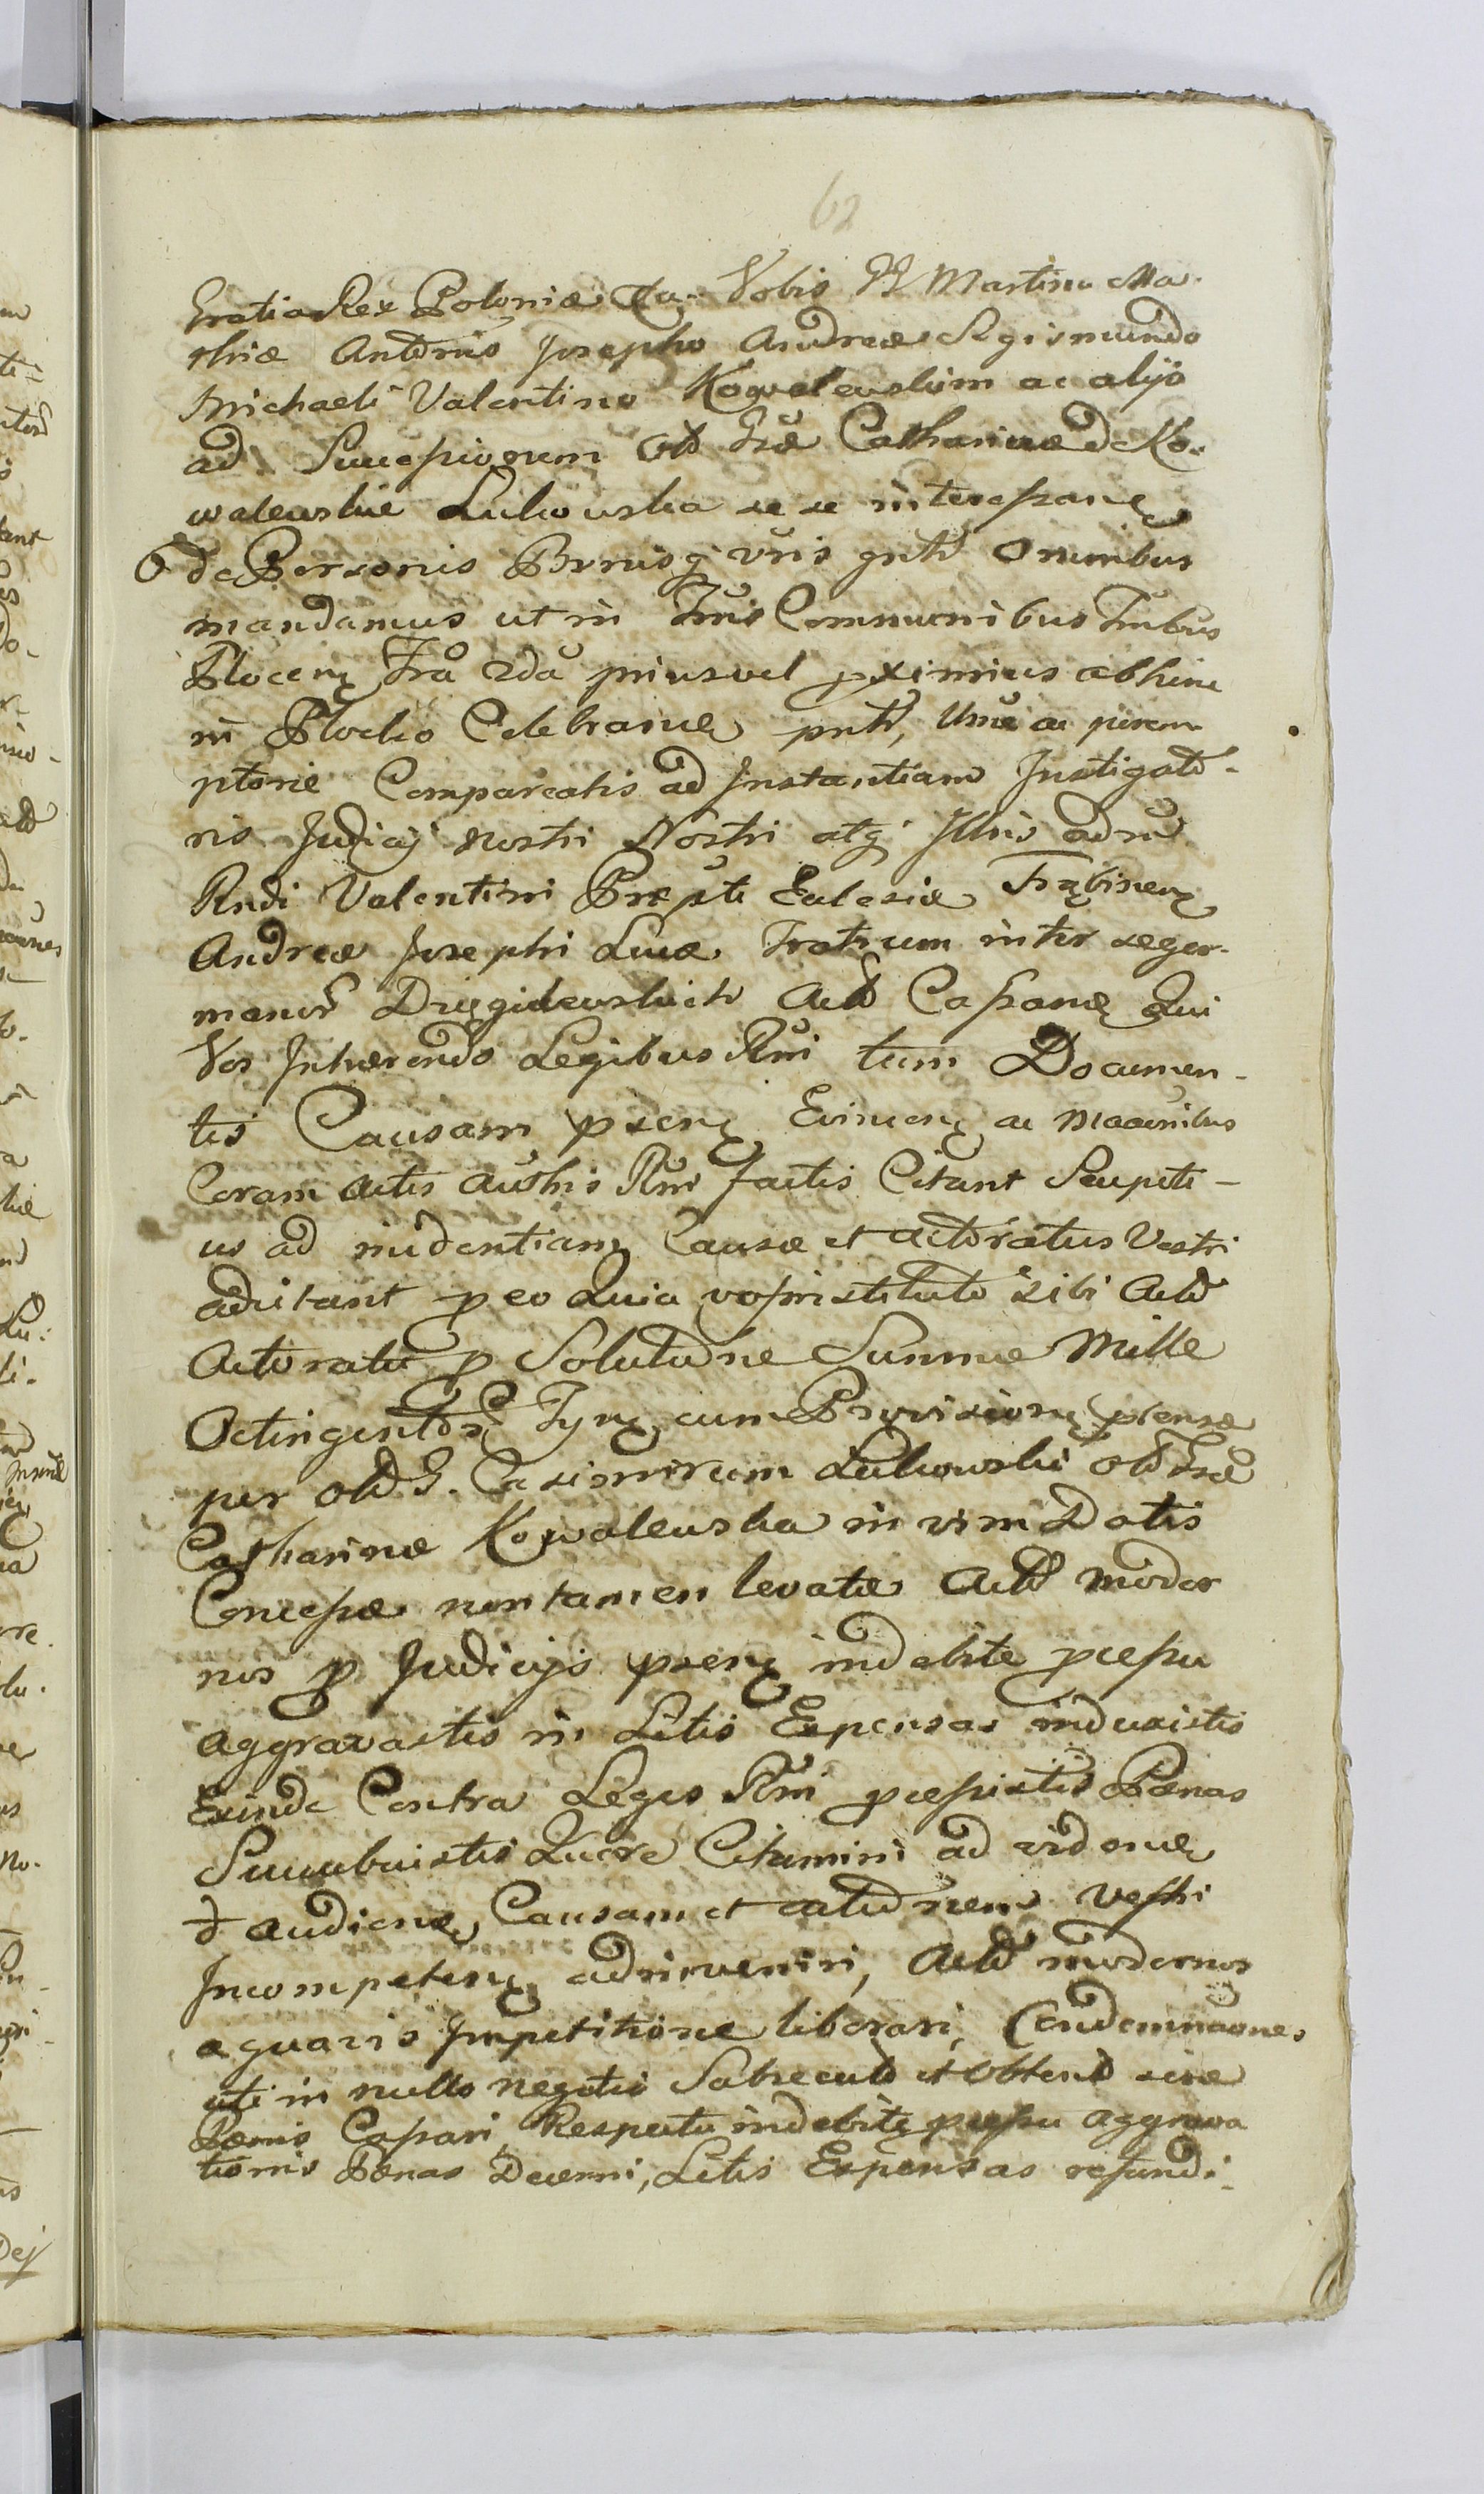 62
Gratia Rex Poloniæ &a. Vobis GG Martino Ma-
thiæ Antonio Josepho Andreæ Sigismundo
Michaeli Valentino Kowalewskim ac alijs
ad Successionem olb Gsæ Catharinæ de Ko-
walewskie Lukowska se se interessanę
de Personis Bonisq vris gnlr Omnibus
mandamus ut in Tris Communibus Tribus
Plocenę Fra 2da prius vel pximius abhinc
in Plocko Celebranę pntr, Ume ac perem
ptorie Compareatis ad Instantiam Instigato-
ris Judicij nostri Nostri atq Illius adm
Rndi Valentini Præpti Ecclesiæ Frąbinenę
Andreæ Josephi Lucæ Fratrum inter se ger-
manor Drzygidewskich Actt Cassanę Qui
Vos Inhærendo Legibus Rni tum Documen-
tis Causam psenę Evincenę ac Maanibus
Coram Actis Authis Rni factis Citant Scupeti-
us ad nudentiam Causæ et Actoratus Vestri
adcitant p eo Quia vos institute sibi Actt
Actoratu p Solutione Summæ Mille
Octingentor Fynę cum Provisionę ptensæ
per olb G. Casimirum Lukowski olb Gsæ
Catharinæ Kowalewska in vim Dotis
Concessæ non tamen levatæ Actt moder
nos p Judicijs psenę indebite pcessu
aggravastis in Litis Expensas induxistis
Exinde Contra Leges Rni pcessistis Pœnas
Succubuistis Quare Citamini ad videnę
et audienę, Causam et actionem Vestri
Incompetenę adinveniri, Actt modernos
a quavis Impetitione liberari, Condemnaones
uti in nullo negotio Subsecutt et Obtent sine
Pœnis Cassari, Respectu indebitę pcessu aggrava
tionis Pœnas Decerni, Litis Expensas refundi